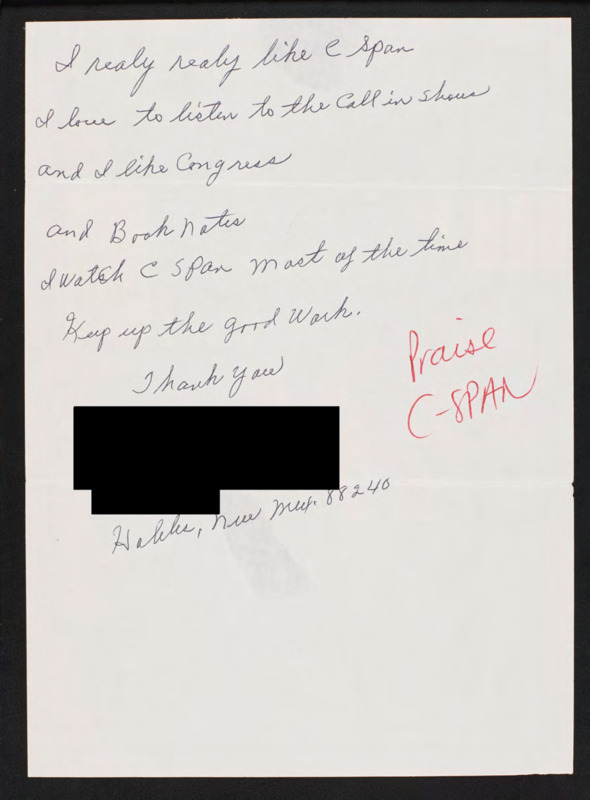 I realy realy like C Span
I love to listen to the Call in shows
and I like Congress
and Book Notes
I watch C SPan most of the time
Keep up the good Work.
Thank You
Praise
C-SPAN
Hobbs, New Mex. 88240